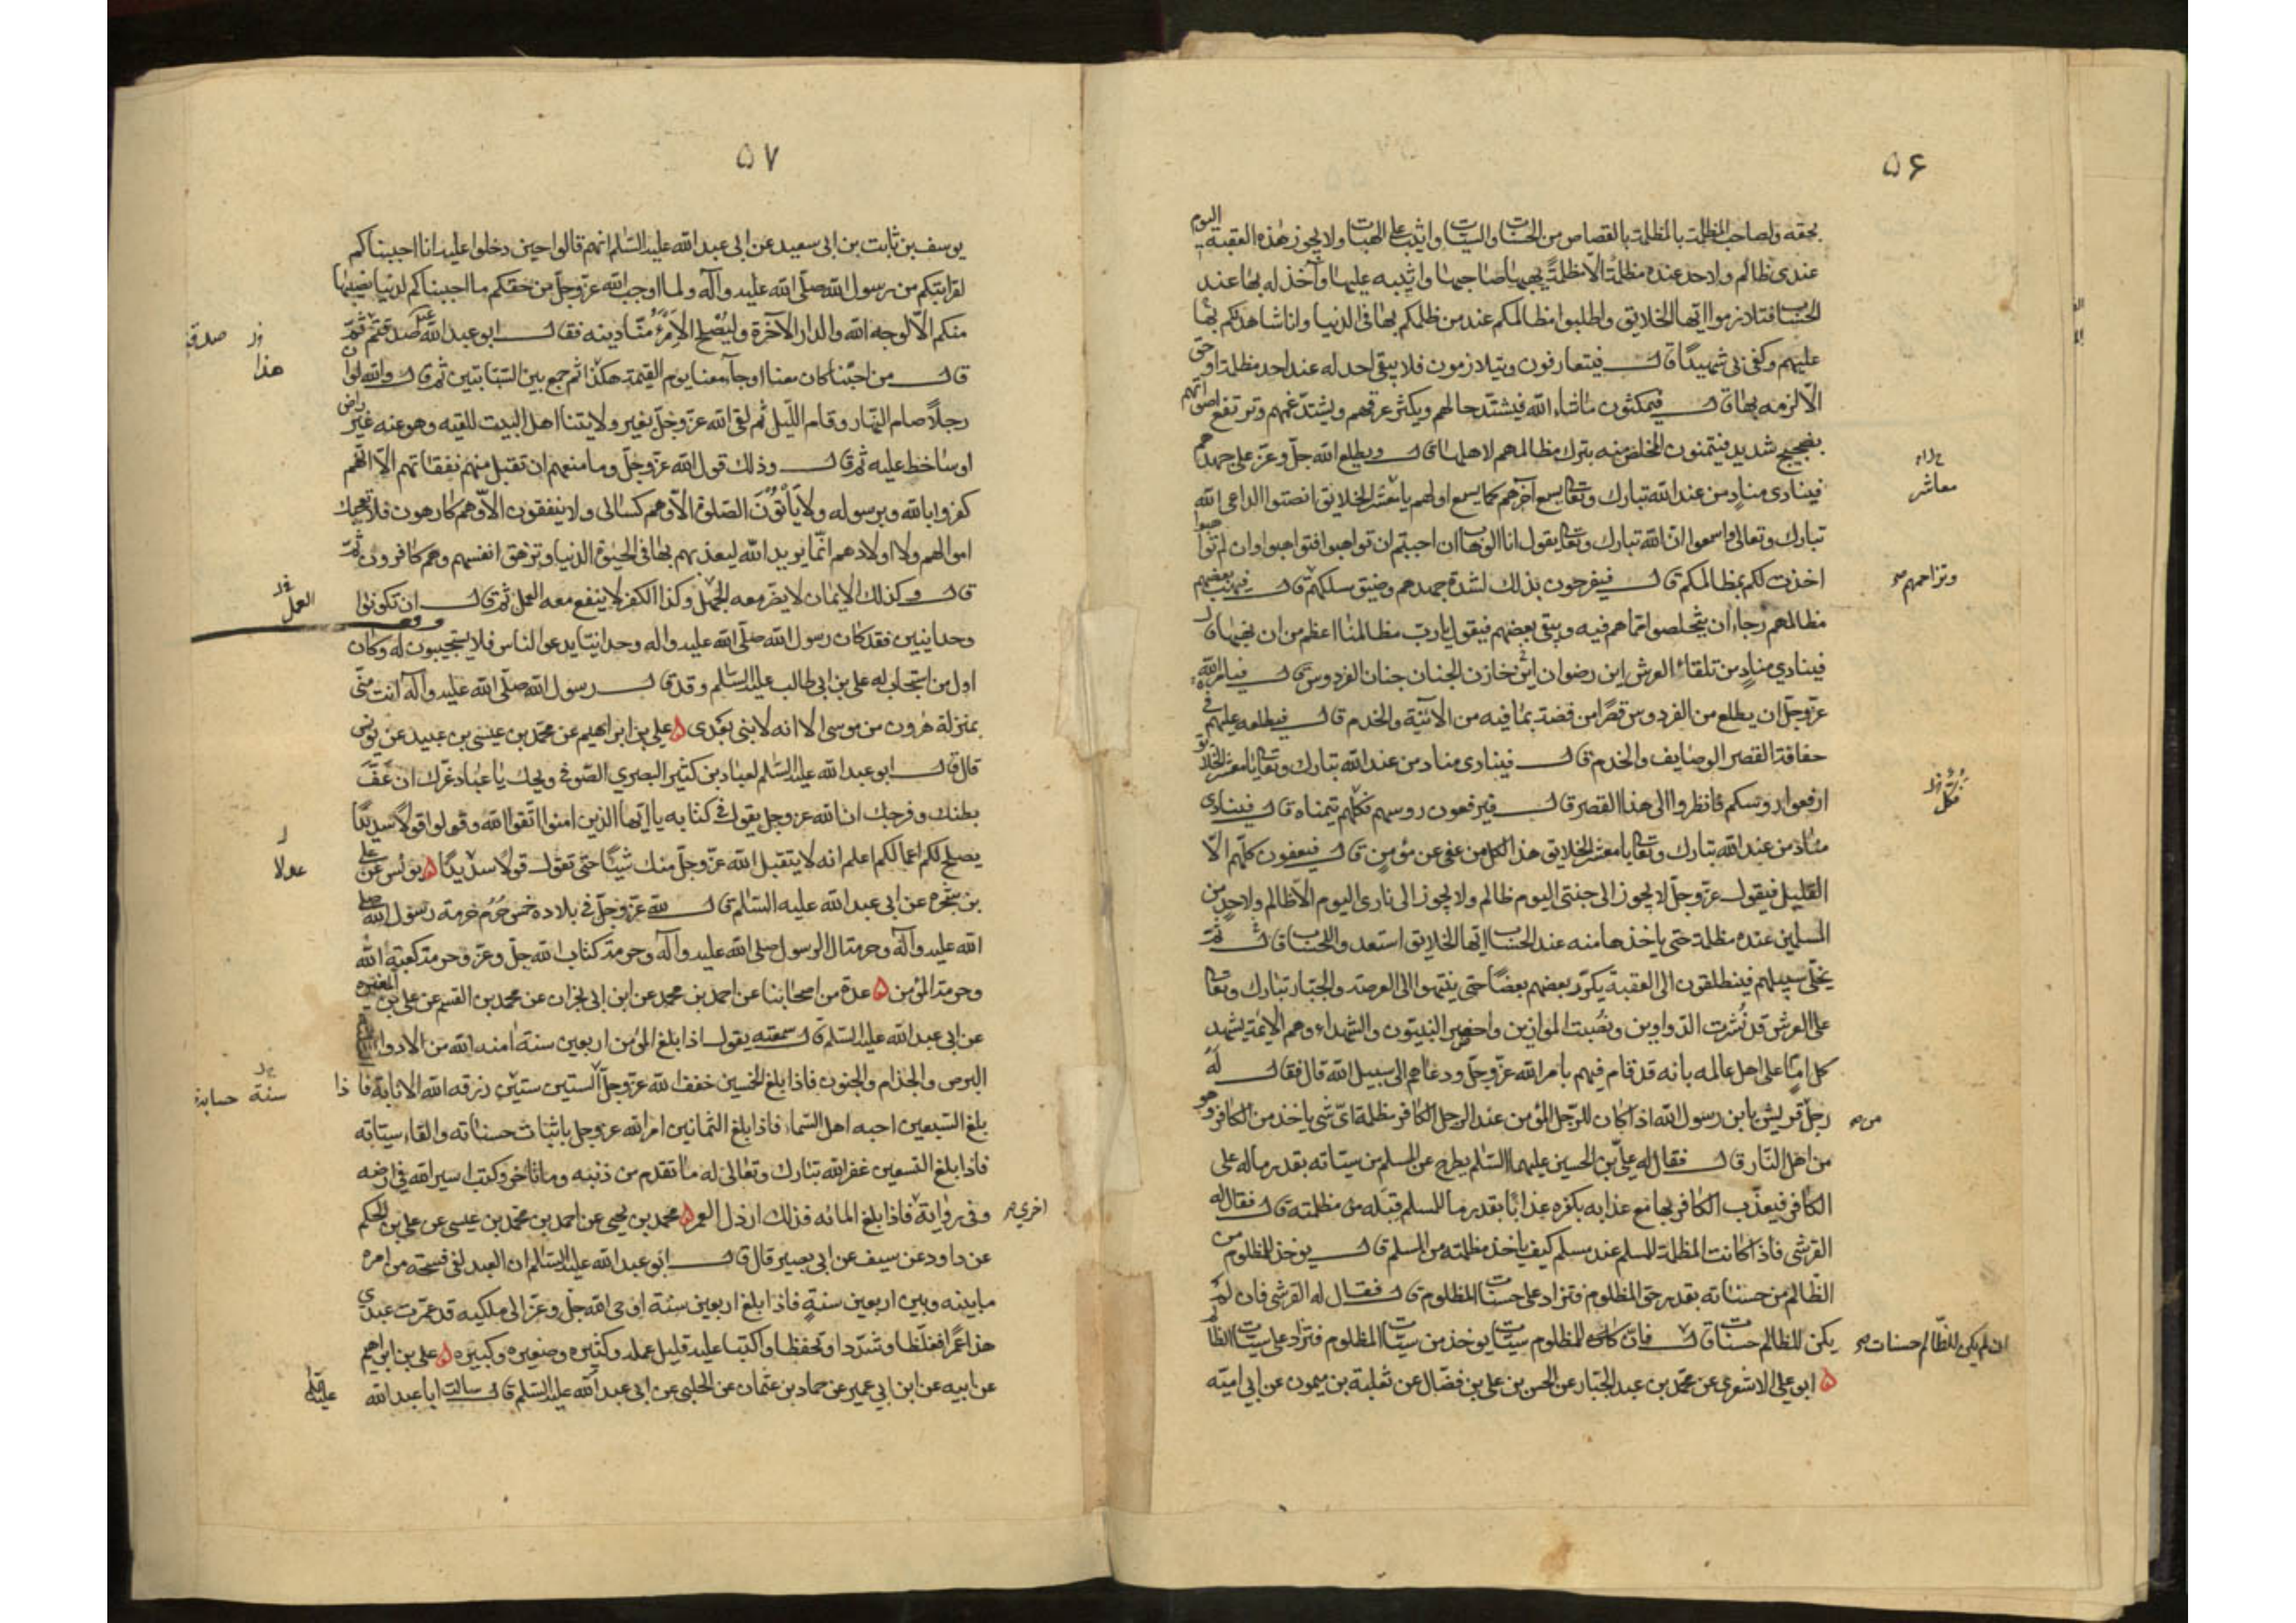 ۵۶
بحقه ولصاحب المظلمة بالمظلمة بالقصاص من الحسنات والسيئات واثيب على الهبات ولا يجوز هذه العقبة اليوم
عندى ظالم ولاحد عنده مظلمة الا مظلمة يهبها صاحبها واثيبه عليها وآخذ له بها عند
الحساب فتلازموا ايها الخلايق واطلبوا مظالمكم عند من ظلمكم بها فى الدنيا وانا شاهدكم بها
عليهم وكفى بى شهيدًا قال فيتعارفون ويتلازمون فلا يبقى احد له عند احد مظلمة او حق
الّا لزمه بها قال فيمكثون ما شاء الله فيشتد حالهم ويكثر عرقهم ويشتد غمهم وترتفع اصواتهم
بضجيج شديد فيتمنون المخلص منه بترك مظالمهم لاهلها قال ويطلع الله جلّ وعزّ على جهدهم
فينادى منادٍ من عند الله تبارك وتعالى يسمع آخرهم كما يسمع اولهم يا معشر الخلايق انصتوا الداعى الله
معاشر
تبارك وتعالى واسمعوا ان الله تبارك وتعالى يقول انا الوهاب ان احببتم ان تواهبوا فتواهبوا وان لم تواهبوا
اخذت لكم بمظالمكم قال فيفرحون بذلك لشدة جهدهم وضيق سلكهم قال فيهب بعضهم
وتزاحمهم صح
مظالمهم رجاء ان يتخلصوا مما هم فيه ويبقى بعضهم فيقول يا رب مظالمنا اعظم من ان نهبها قال
فينادي منادٍ من تلقاء العرش اين رضوان اين خازن الجنان جنان الفردوس قال فيامر الله
عزّ وجلّ ان يطلع من الفردوس قصرًا من فضة بما فيه من الآنية والخدم قال فيطلعه عليهم فى
حفافة القصر الوصايف والخدم قال فينادى مناد من عند الله تبارك وتعالى يا معشر الخلايق
ارفعوا رؤسكم فانظروا الى هذا القصر قال فيرفعون روسهم فكلهم يتمناه قال فينادى
فكلّ
مناد من عند الله تبارك وتعالى يا معشر الخلايق هذا لكل من عفى عن مؤمن قال فيعفون كلّهم الّا
القليل فيقول عزّ وجلّ لا يجوز الى جنتى اليوم ظالم ولا يجوز الى نارى اليوم الّا ظالم ولاحدٍ من
المسلمين عنده مظلمة حتى ياخذها منه عند الحساب ايّها الخلايق استعدوا للحساب قال ثمّ
يخلّى سبيلهم فينطلقون الى العقبة يكرد بعضهم بعضًا حتى ينتهوا الى العرصة والجبّار تبارك وتعالى
على العرش قد نُشرت الدّواوين ونُصبت الموازين واحضر النبيّون والشهداء وهم الائمّة يشهد
كل امام على اهل عالمه بانه قد قام فيهم بامر الله عزّ وجلّ ودعاهم الى سبيل الله قال فقال لَهُ
رجل قريش يا بن رسول الله اذا كان للرّجل المؤمن عند الرجل الكافر مظلمة اىّ شى ياخذ من الكافر وهو
من صح
من اهل النّار قال فقال له علىّ بن الحسين عليهما السّلم يطرح عن المسلم من سيّئاته بقدر ما له على
الكافر فيعذّب الكافر بها مع عذابه بكفره عذابًا بقدر ما للمسلم قبَله من مظلمته قال فقال له
القرشى فاذا كانت المظلمة للمسلم عند مسلم كيف ياخذ مظلمته من المسلم قال يوخذ للمظلوم من
الظّالم من حسناته بقدر حق المظلوم فتزاد على حسنات المظلوم قال فقال له القرشى فان لم
يكن للظالم حسنات قال فان كان للمظلوم سيئات يوخذ من سيئات المظلوم فتزاد على سيئات الظالم
ان لم يكن للظّالم حسنات صح
۵ ابو على الاشعرى عن محمّد بن عبد الجبّار عن الحسن بن على بن فضّال عن ثعلبة بن ميمون عن ابى اميّه
۵۷
يوسف بن ثابت بن ابى سعيد عن ابى عبد الله عليه السّلم انهم قالوا حين دخلوا عليه انا احببناكم
لقرابتكم من رسول الله صلّى الله عليه وآله ولما اوجب الله عزّ وجلّ من حقكم ما احببناكم لدنيا نصيبها
منكم الّا لوجه الله والدار الآخرة وليُصْلح لامرِءٍ منّا دينه فقال ابو عبد الله صدقتم ثمّ
قال من احبّنا كان معنا او جآء معنا يوم القيمة هكذا ثم جمع بين السّبّابتين ثم قال والله لو ان
هذا
رجلاً صام النّهار وقام اللّيل ثم لقى الله عزّ وجلّ بغير ولايتنا اهل البيت للقيه وهو عنه غير راض
او ساخط عليه ثم قال وذلك قول الله عزّ وجلّ وما منعهم ان تقبل منهم نفقاتهم الّا انّهم
كفروا بالله وبرسوله ولا يأتون الصّلوة الّا وهم كسالى ولا ينفقون الّا وهم كارهون فلا تعجبك
اموالهم ولا اولادهم انّما يريد الله ليعذبهم بها فى الحيوة الدنيا وتزهق انفسهم وهم كافرون ثمّ
قال وكذلك الايمان لا يضر معه الجهل وكذا الكفر لا ينفع معه العمل ثم قال ان تكونوا
العمل
وحدانيين فقد كان رسول الله صلّى الله عليه واله وحدانيّا يدعو الناس فلا يستجيبون له وكان
اول من استجاب له على بن ابى طالب عليه السّلم وقد قال رسول الله صلّى الله عليه وآله انت منّى
بمنزلة هٰرون من موسى الا انه لا نبى بعدى ۵ على بن ابراهيم عن محمّد بن عيسى بن عبيد عن يونس
قال قال ابو عبد الله عليه السّلم لعباد بن كثير البصرى الصّوفى ويحك يا عباد غرّك ان عَفَّ
بطنك وفرجك ان الله عز وجل يقول فى كتابه يا ايّها الذين امنوا اتّقوا الله وقولوا قولاً سديدًا
يصلح لكم اعمالكم اعلم انه لا يتقبل الله عزّ وجلّ منك شيئًا حتى تقول قولاً سديدًا ۵ يونس عن على
عدلا
بن شجره عن ابى عبد الله عليه السّلم قال لله عزّ وجلّ فى بلاده خمس حُرُم حرمة رسول الله صلى
الله عليه وآله وحرمة ال الرسول صلى الله عليه وآله وحرمة كتاب الله جلّ وعزّ وحرمة كعبة الله
وحرمة المؤمن ۵ عدة من اصحابنا عن احمد بن محمد عن ابن ابى نجران عن محمد بن القسم عن على بن المغيره
عن ابى عبد الله عليه السّلم قال سمعته يقول اذا بلغ المؤمن اربعين سنة آمنه الله من الادواء
البرص والجذام والجنون فاذا بلغ الخمسين خفف الله عزّ وجلّ الستين ستين رزقه الله الانابة فاذا
سنة حسابه
بلغ السّبعين احبه اهل السّماء فاذا بلغ الثّمانين امر الله عز وجل باثبات حسناته والقاء سيئاته
فاذا بلغ التسعين غفر الله تبارك وتعالى له ما تقدم من ذنبه وما تاخر وكتب اسير الله فى ارضه
وفى رواية فاذا بلغ المائه فذلك ارذل العمر ۵ محمد بن يحيى عن احمد بن محمّد بن عيسى عن على بن الحكم
اخرى صح
عن داود عن سيف عن ابى بصير قال قال ابو عبد الله عليه السّلم ان العبد لفى فسحة من امره
ما بينه وبين اربعين سنةٍ فاذا بلغ اربعين سنة اوحى الله جلّ وعزّ الى ملكيه قد عمّرت عبدى
هذا عمرًا فغلّظا وشدّدا وتحفظا واكتبا عليه قليل عمله وكثيره وصغيره وكبيره ۵ على بن ابراهيم
عن ابيه عن ابن ابى عمير عن حماد بن عثمان عن الحلبى عن ابى عبد الله عليه السّلم قال سالت ابا عبد الله